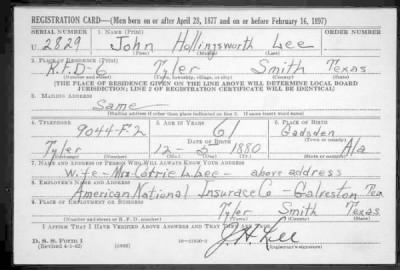 REGISTRATION CARD—(Men born on or after April 28, 1877 and on or before February 16, 1897)
SERIAL NUMBER 1. NAME (Print) ORDER NUMBER
U. 2829 John Hollingsworth Lee
(First) (Middle) (Last)
2. PLACE OF RESIDENCE (Print)
R.F.D-2 Tyler Smith Texas
(Number and street) (Town, township, village, or city) (County) (State)
[THE PLACE OF RESIDENCE GIVEN ON THE LINE ABOVE WILL DETERMINE LOCAL BOARD
JURISDICTION; LINE 2 OF REGISTRATION CERTIFICATE WILL BE IDENTICAL]
3. MAILING ADDRESS
Same
[Mailing address if other than place indicated on line 2. If same insert word same]
4. TELEPHONE 5. AGE IN YEARS 6. PLACE OF BIRTH
9044-F-2 61 Gadsden
DATE OF BIRTH (Town or county)
Tyler 12-5-1880 Ala
(Exchange) (Number) (Mo.) (Day) (Yr.) (State or country)
7. NAME AND ADDRESS OF PERSON WHO WILL ALWAYS KNOW YOUR ADDRESS
Wife-Mrs Corrie L. Lee - above address
8. EMPLOYER'S NAME AND ADDRESS
American National Insurace Co - Galveston Tex
9. PLACE OF EMPLOYMENT OR BUSINESS
Tyler Smith Texas
(Number and street or R. F. D. number) (Town) (County) (State)
I AFFIRM THAT I HAVE VERIFIED ABOVE ANSWERS AND THAT THEY ARE TRUE.
D. S. S. Form 1 J. H. Lee
(Revised 4-1-42) (over) (Registrant's signature)